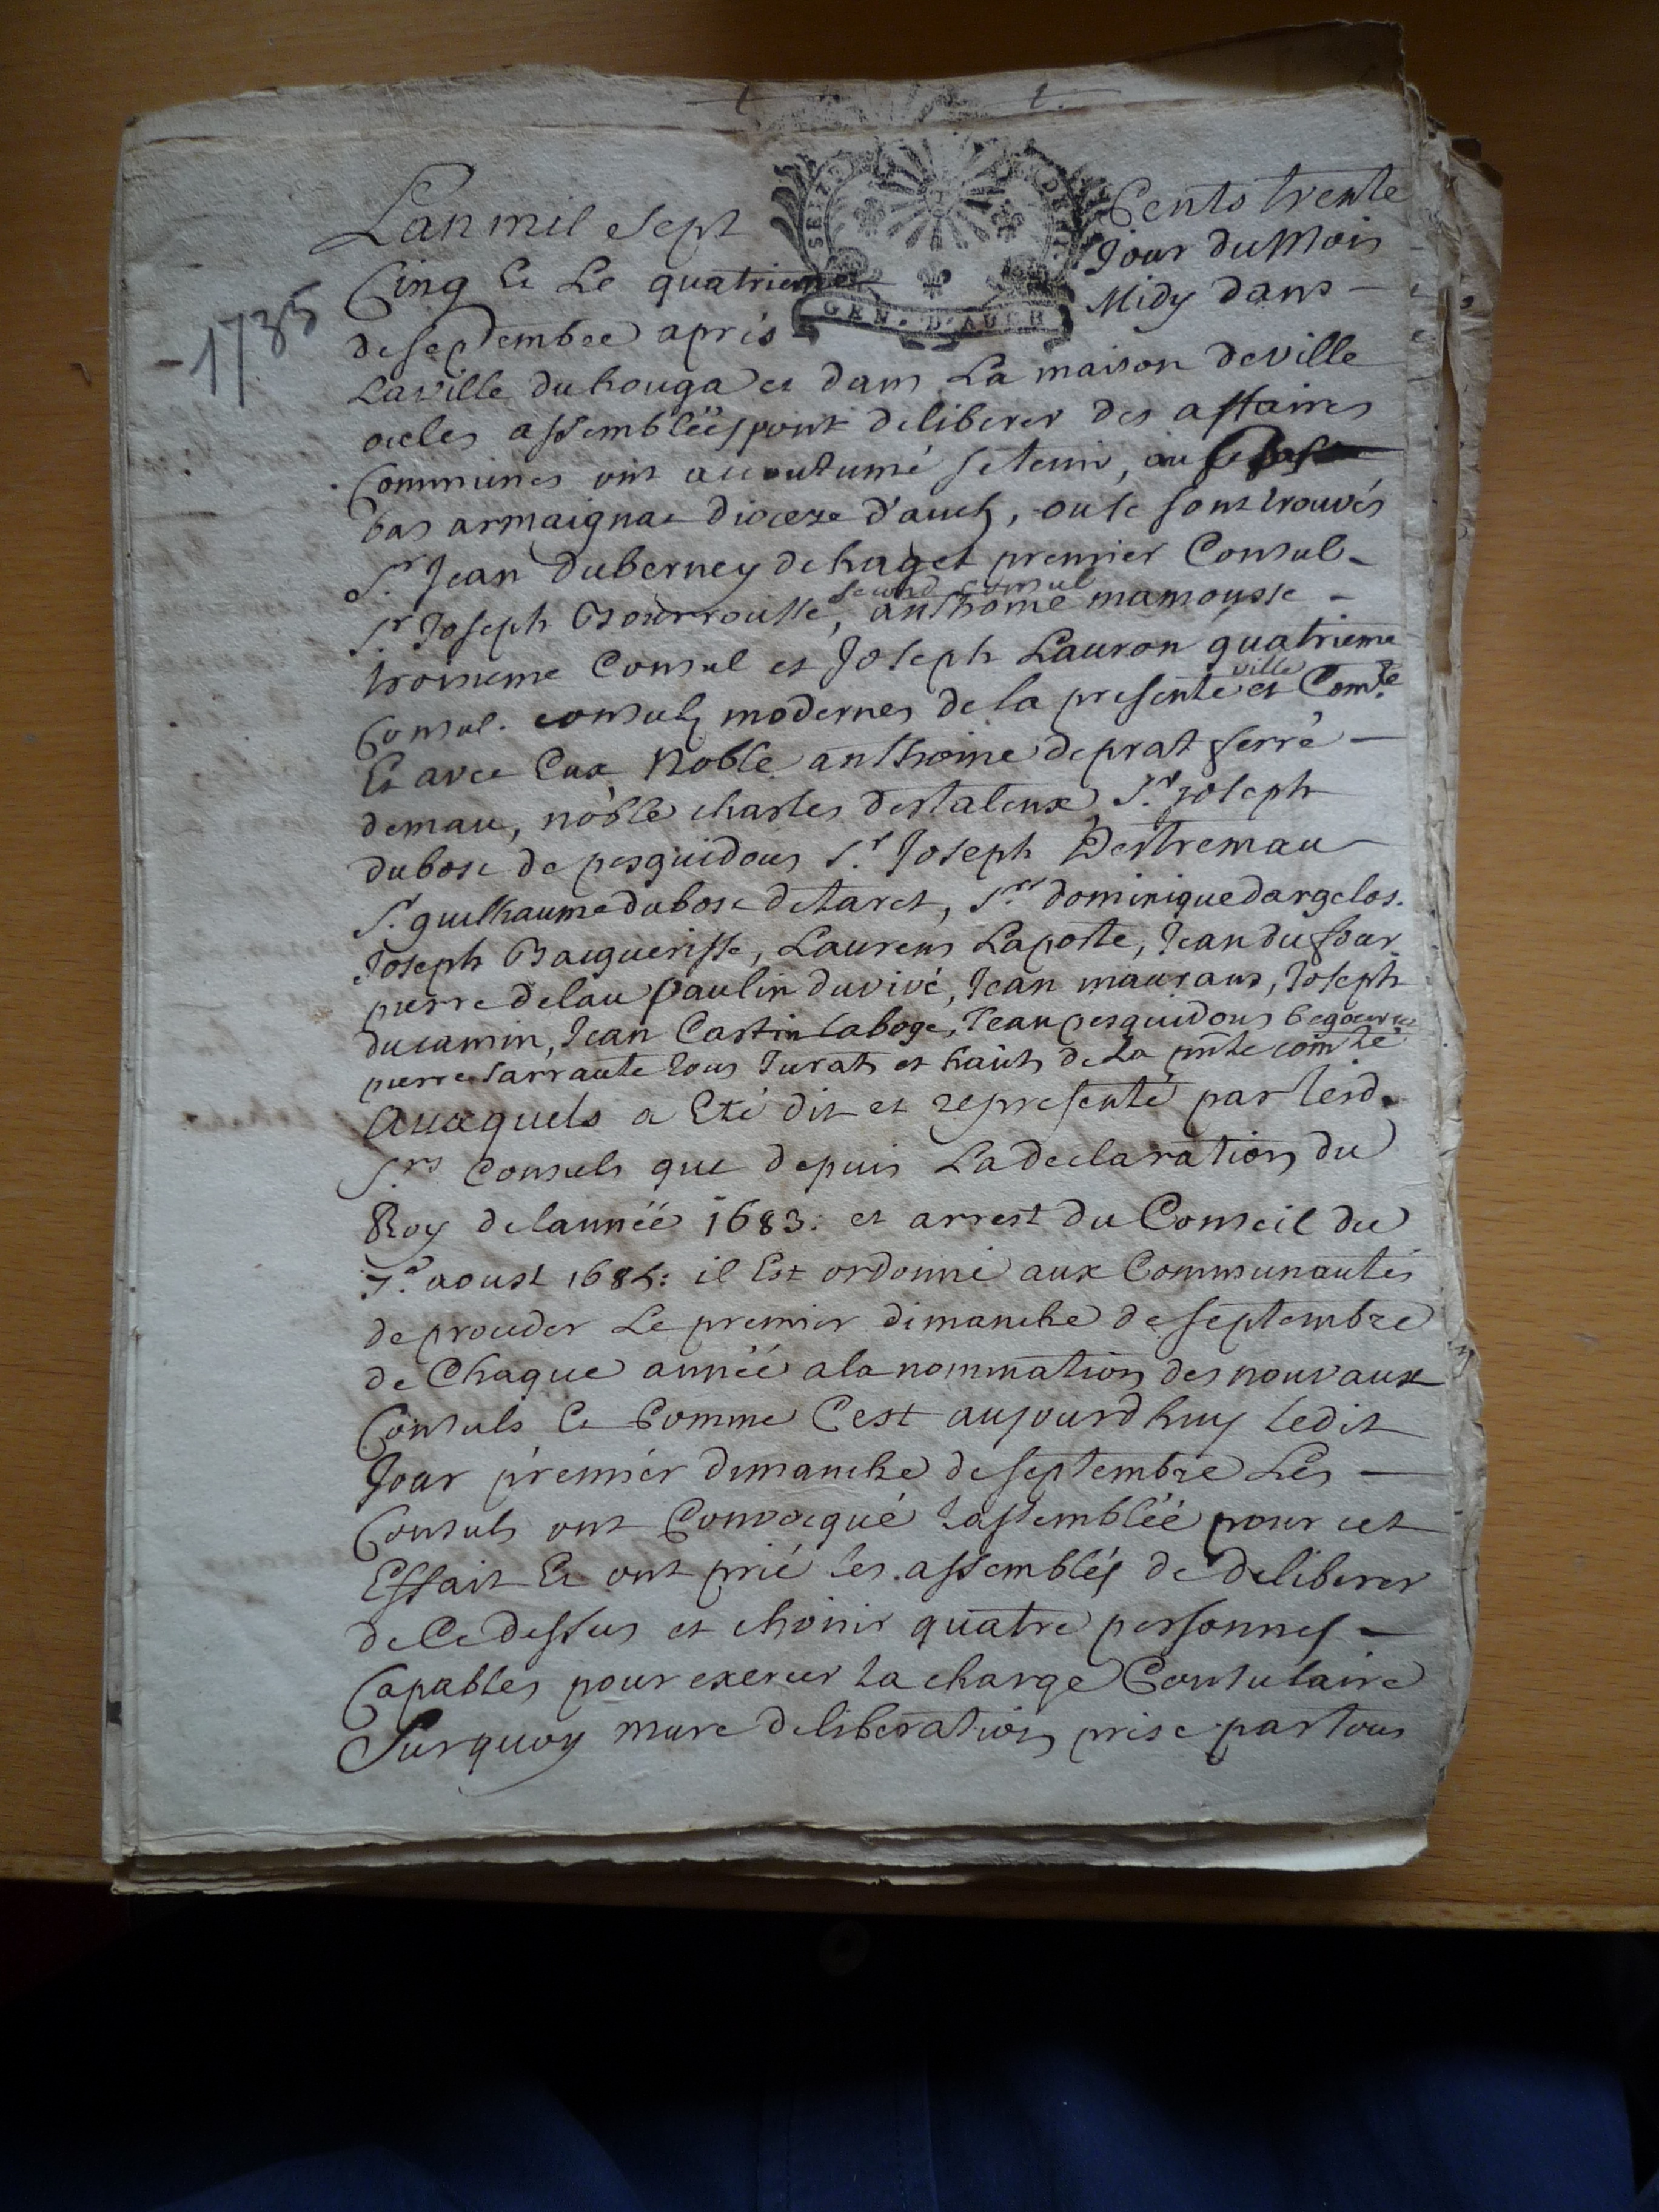 Lan mil Sept Cents trente
Cinq Et Le quatrieme Jour du Mois
1735
de septembre après Midy dans
GEN. D'AUCH
Laville du houga et dans La maison deville
ou les assemblées pour deliberer des affaires
Communes ont acoutumé se tenir, au
bas armaignac dioceze d'auch, ou se sont trouvés
Sr. Jean duberney de haget premier Consul
second consul
Sr Joseph Bourrousse, anthoine mamousse
troisieme Consul et Joseph Lauron quatrieme
ville
Consul. consuls modernes de la presente et Comte.
Et avec Eux Noble anthoine deprat ferré
demau, noble charles destaleux, Sr. Joseph
dubosc de pesquidous Sr. Joseph Destremau
Sr. guilhaume dubosc detaret, Sr. dominique dargelos.
Joseph Bacguerisse, Laurens Laporte, Jean dufour
pierre delau paulin duvivé, Jean maurans, Joseph
ducamin, Jean Castin laboge, Jean pesquidous
pierre Sarraute tous Jurats et haûts de La pnte comte
Auxquels a Eté dit et representé par lesd.
Srs. Consuls que depuis La declaration du
Roy de lannéé 1683. et arrest du Conseil du
7e. aoust 1684: il Est ordonné aux Communautés
de proceder Le premier dimanche de septembre
de Chaque annéé a la nommination des nouvaux
Consuls Et Comme C'est aujourdhuy ledit
Jour prémiér dimanche de septembre Les
Consuls ont Convocqué Lassembléé pour cet
Effait Et ont prié les assemblés de deliberer
de Ce dessus et choisir quatre personnes
Capables pour exercer la charge Consulaire
Surquoy mure deliberation prise par tous